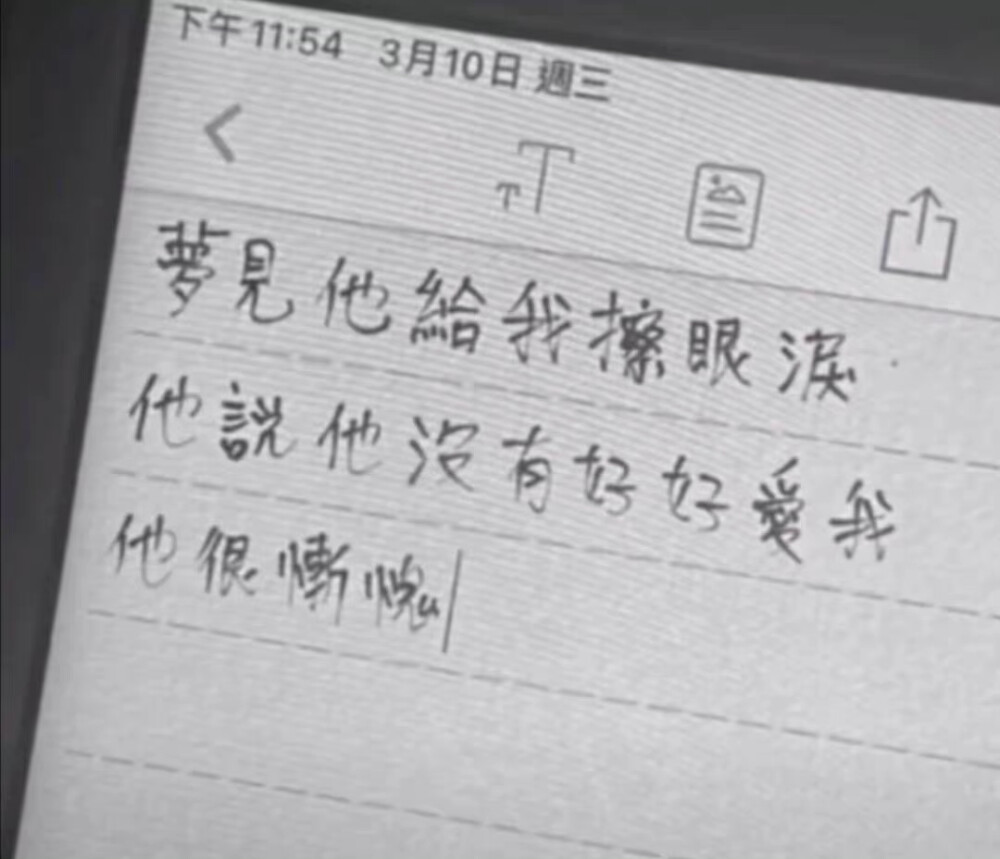 下午11:54 3月10日 週三
夢見他給我擦眼淚
他說他沒有好好愛我
他很慚愧